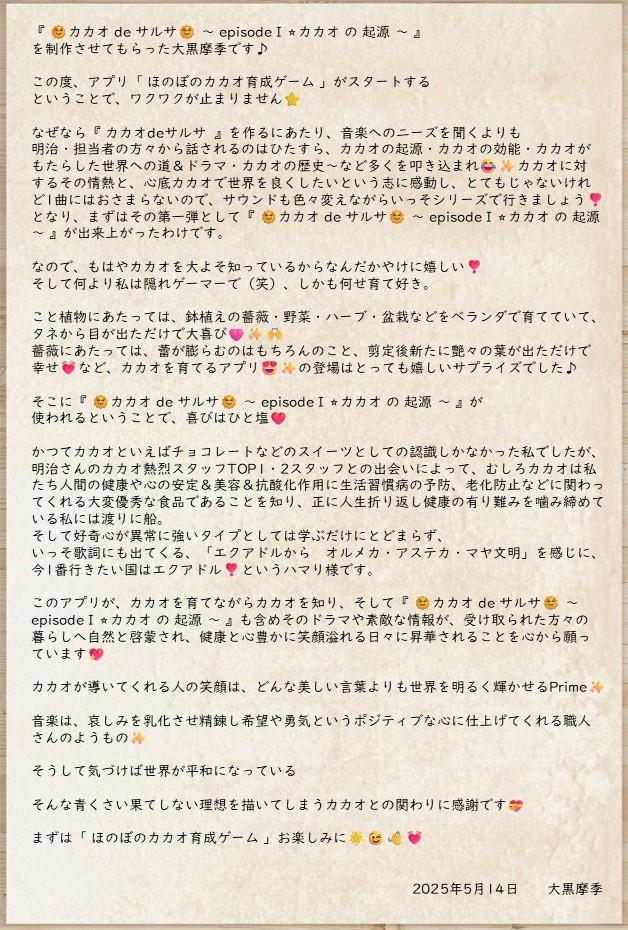 『 😊カカオ de サルサ😊 ～ episode I ⭐カカオ の 起源 ～ 』
を制作させてもらった大黒摩季です♪
この度、アプリ「 ほのぼのカカオ育成ゲーム 」がスタートする
ということで、ワクワクが止まりません⭐
なぜなら『 カカオdeサルサ 』を作るにあたり、音楽へのニーズを聞くよりも
明治・担当者の方々から話されるのはひたすら、カカオの起源・カカオの効能・カカオが
もたらした世界への道＆ドラマ・カカオの歴史～など多くを叩き込まれ😂✨カカオに対
するその情熱と、心底カカオで世界を良くしたいという志に感動し、とてもじゃないけれ
ど1曲にはおさまらないので、サウンドも色々変えながらいっそシリーズで行きましょう❣
となり、まずはその第一弾として『 😊カカオ de サルサ😊 ～ episode I ⭐カカオ の 起源
～ 』が出来上がったわけです。
なので、もはやカカオを大よそ知っているからなんだかやけに嬉しい❣
そして何より私は隠れゲーマーで（笑）、しかも何せ育て好き。
こと植物にあたっては、鉢植えの薔薇・野菜・ハーブ・盆栽などをベランダで育てていて、
タネから目が出ただけで大喜び💗✨🙌
薔薇にあたっては、蕾が膨らむのはもちろんのこと、剪定後新たに艶々の葉が出ただけで
幸せ💓など、カカオを育てるアプリ😍✨の登場はとっても嬉しいサプライズでした♪
そこに『 😊カカオ de サルサ😊 ～ episode I ⭐カカオ の 起源 ～ 』が
使われるということで、喜びはひと塩❤
かつてカカオといえばチョコレートなどのスイーツとしての認識しかなかった私でしたが、
明治さんのカカオ熱烈スタッフTOP1・2スタッフとの出会いによって、むしろカカオは私
たち人間の健康や心の安定＆美容＆抗酸化作用に生活習慣病の予防、老化防止などに関わっ
てくれる大変優秀な食品であることを知り、正に人生折り返し健康の有り難みを噛み締めて
いる私には渡りに船。
そして好奇心が異常に強いタイプとしては学ぶだけにとどまらず、
いっそ歌詞にも出てくる、「エクアドルから　オルメカ・アステカ・マヤ文明」を感じに、
今1番行きたい国はエクアドル❣というハマり様です。
このアプリが、カカオを育てながらカカオを知り、そして『 😊カカオ de サルサ😊 ～
episode I ⭐カカオ の 起源 ～ 』も含めそのドラマや素敵な情報が、受け取られた方々の
暮らしへ自然と啓蒙され、健康と心豊かに笑顔溢れる日々に昇華されることを心から願っ
ています💖
カカオが導いてくれる人の笑顔は、どんな美しい言葉よりも世界を明るく輝かせるPrime✨
音楽は、哀しみを乳化させ精錬し希望や勇気というポジティブな心に仕上げてくれる職人
さんのようもの✨
そうして気づけば世界が平和になっている
そんな青くさい果てしない理想を描いてしまうカカオとの関わりに感謝です💝
まずは「 ほのぼのカカオ育成ゲーム 」お楽しみに🌟😉👏💓
2025年5月14日　　大黒摩季